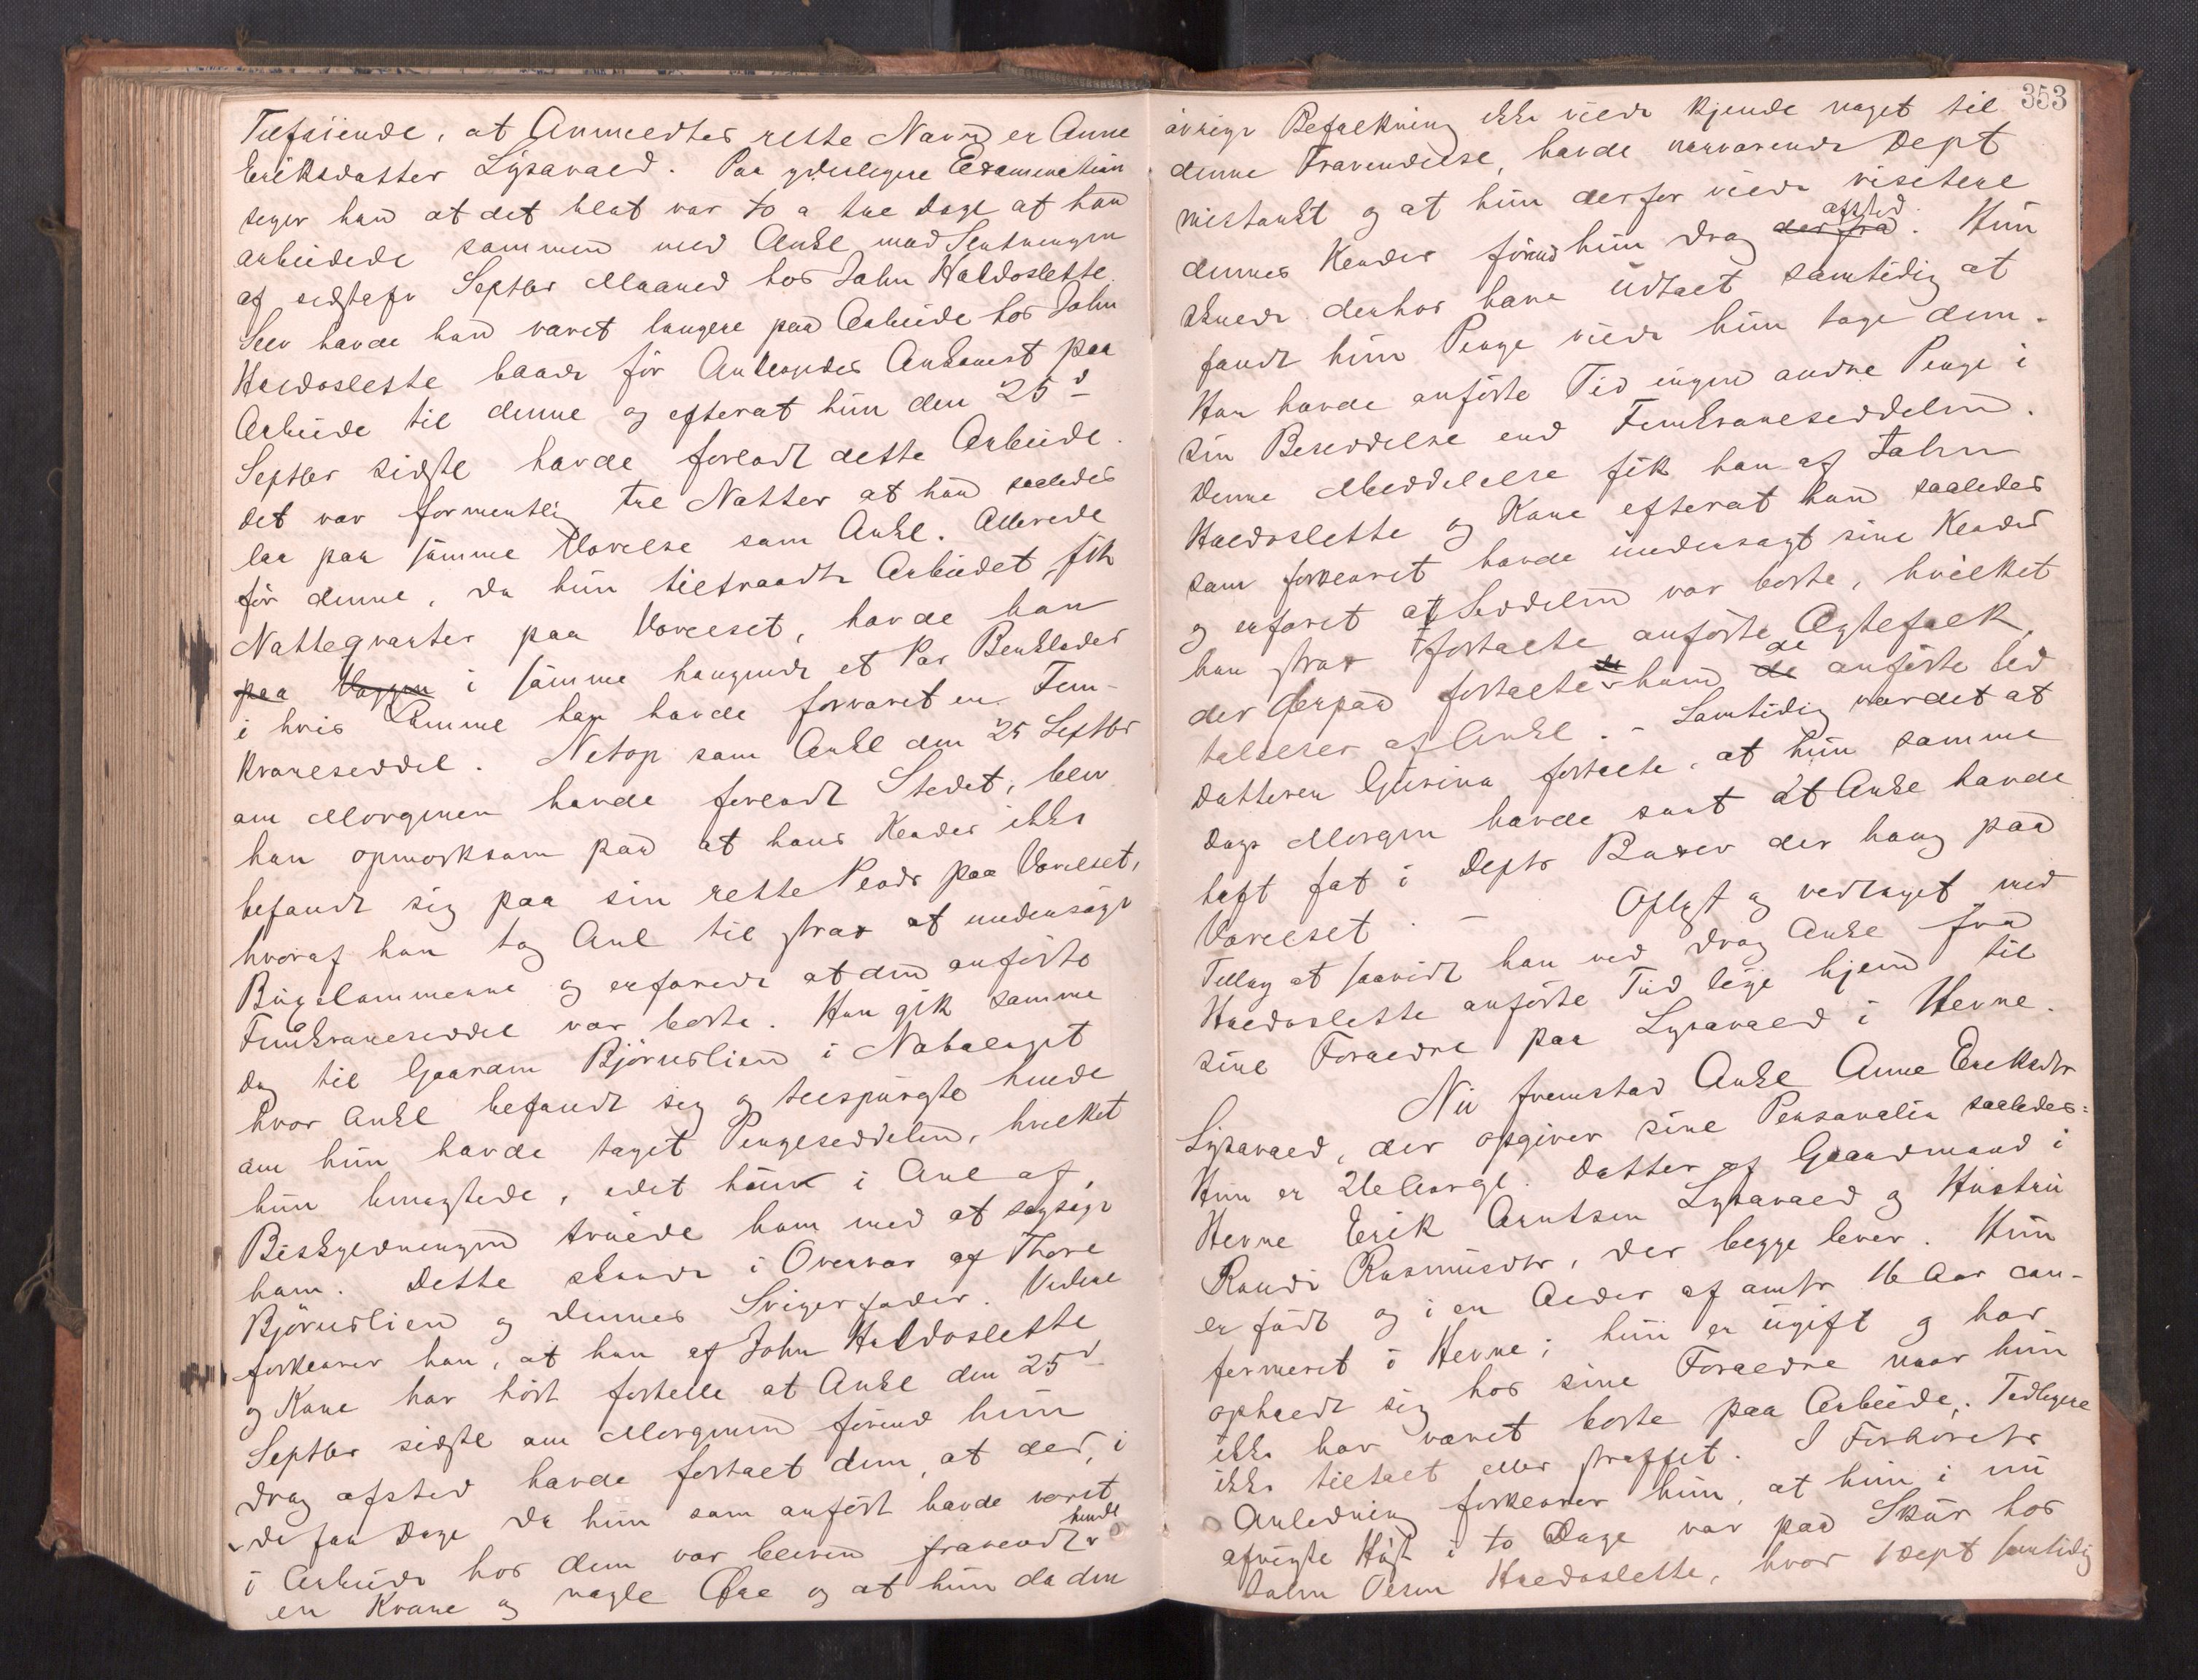 Tilføiende, at Anmeldtes rette Navn er Anne
Eriksdatter Lysavald. Paa yderligere Examination
siger han at det blot var to a tre Dage at han
arbeidede sammen med Ankl mod Slutningen
af sidstafv Septbr Maaned hos John Haldoslette.
Selv havde han været længere paa Arbeide hos John
Haldoslette baade før Anklagedes Ankomst paa
Arbeide til denne og efterat hun den 25d
Septbr sidstl havde forladt dette Arbeide.
Det var formentlig tre Nætter at han saaledes
laa paa samme Værelse som Ankl. Allerede
før denne, da hun tiltraadte Arbeidet, fik
Natteqvarter paa Værelset, havde han
paa Væggen i samme hængende et Par Benklæder
i hvis Lomme han havde forvaret en Fem-
kroneseddel. Netop som Ankl den 25 Septbr
om Morgenen havde forladt Stedet, blev
han opmærksom paa at hans Klæder ikke
befandt sig paa sin rette Plads paa Værelset,
hvoraf han tog Anl til strax at undersøge
Buxelommerne og erfarede at den anførte
Femkroneseddel var borte. Han gik samme
Dag til Gaarden Bjørnslien i Nabolaget
hvor Ankl befandt sig og tilspurgte hende
om hun havde taget Pengeseddelen, hvilket
hun benægtede, idet hun i Anl af
Beskyldningen truede ham med at sagsøge
ham. Dette skede i Overvær af Thore
Bjørnslien og dennes Svigerfader. Videre
forklarer han, at han af John Haldoslette
og Kone har hørt fortelle at Ankl den 25d
Septbr sidstl om Morgenen førend hun
drog afsted havde fortalt dem, at der, i
de faa Dage da hun som anført havde været
i Arbeide hos dem var bleven fravendt hende
en Krone og nogle Øre og at hun da den
353
øvrige Befolkning ikke vilde kjende noget til
denne Fravendelse, havde nærværende Dept
mistænkt og at hun derfor vilde visitere
dennes Klæder førend hun drog derfra afsted. Hun
skulde derhos have udtalt samtidig at
fandt hun Penge vilde hun tage dem.
Han havde anførte Tid ingen andre Penge i
sin Besiddelse end Femkroneseddelen.
Denne Meddelelse fik han af John
Haldoslette og Kone efterat han saaledes
som forklaret havde undersøgt sine Klæder
og erfaret at Seddelen var borte, hvilket
han strax fortalte anførte Ægtefolk
der derpaa fortalte ham de de anførte Ud
talelser af Ankl. – Samtidig var det at
Datteren Gurina fortalte, at hun samme
Dags Morgen havde seet at Ankl havde
haft fat i Depts Buxer der hang paa
Værelset. – Oplæst og vedtaget med
Tillæg at saavidt han ved drog Ankl fra
Haldoslette anførte Tid lige hjem til
sine Forældre paa Lysavald i Hevne.
Nu fremstod Ankl Anne Eriksdtr
Lysavald, der opgiver sine Personalia saaledes:
Hun er 21 Aargl. Datter af Gaardmand i
Hevne Erik Arntsen Lysavald og Hustru
Randi Rasmusdtr, der begge lever. Hun
er født og i en Alder af omtr 16 Aar con-
fermeret i Hevne; hun er ugift og har
opholdt sig hos sine Forældre naar hun
ikke har været borte paa Arbeide. Tidligere
ikke tiltalt eller straffet. I Forhørets
Anledning forklarer hun, at hun i nu
afvigte Høst i to Dage var paa Skur hos
John Olsen Haldoslette, hvor Dept samtidig